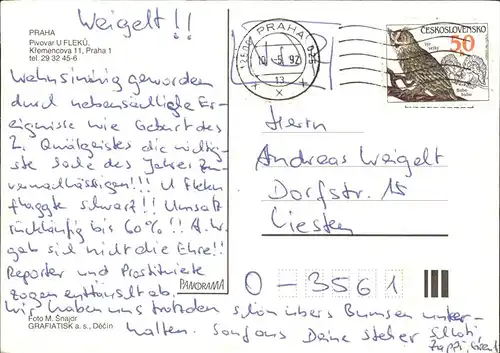 Weigelt!!
PRAHA
Pivovar U FLEKŮ,
Křemencova 11, Praha 1
tel. 29 32 45-6
Wahnsinnig geworden
durch nebensächliche Er-
eignisse wie Geburt des
2. Quälgeistes die wichtig-
ste Sache des Jahres zu
vernachlässigen!!! U Fleku
flaggte schwarz!!! Umsatz
rückläufig bis 60%!! A.W.
gab sich nicht die Ehre!!
Reporter und Prostituierte
zogen enttäuscht ab.
Wir haben uns trotzdem schön übers Bumsen unter-
halten. Sonst Deine
Foto M. Šnajor
GRAFIATISK a. s., Děčín
PANORAMA
PRAHA 025
10.-5.92
13
ČESKOSLOVENSKO
50
Výr velký
Bubo bubo
Herrn
Andreas Weigelt
Dorfstr. 15
Liesten
O-3561